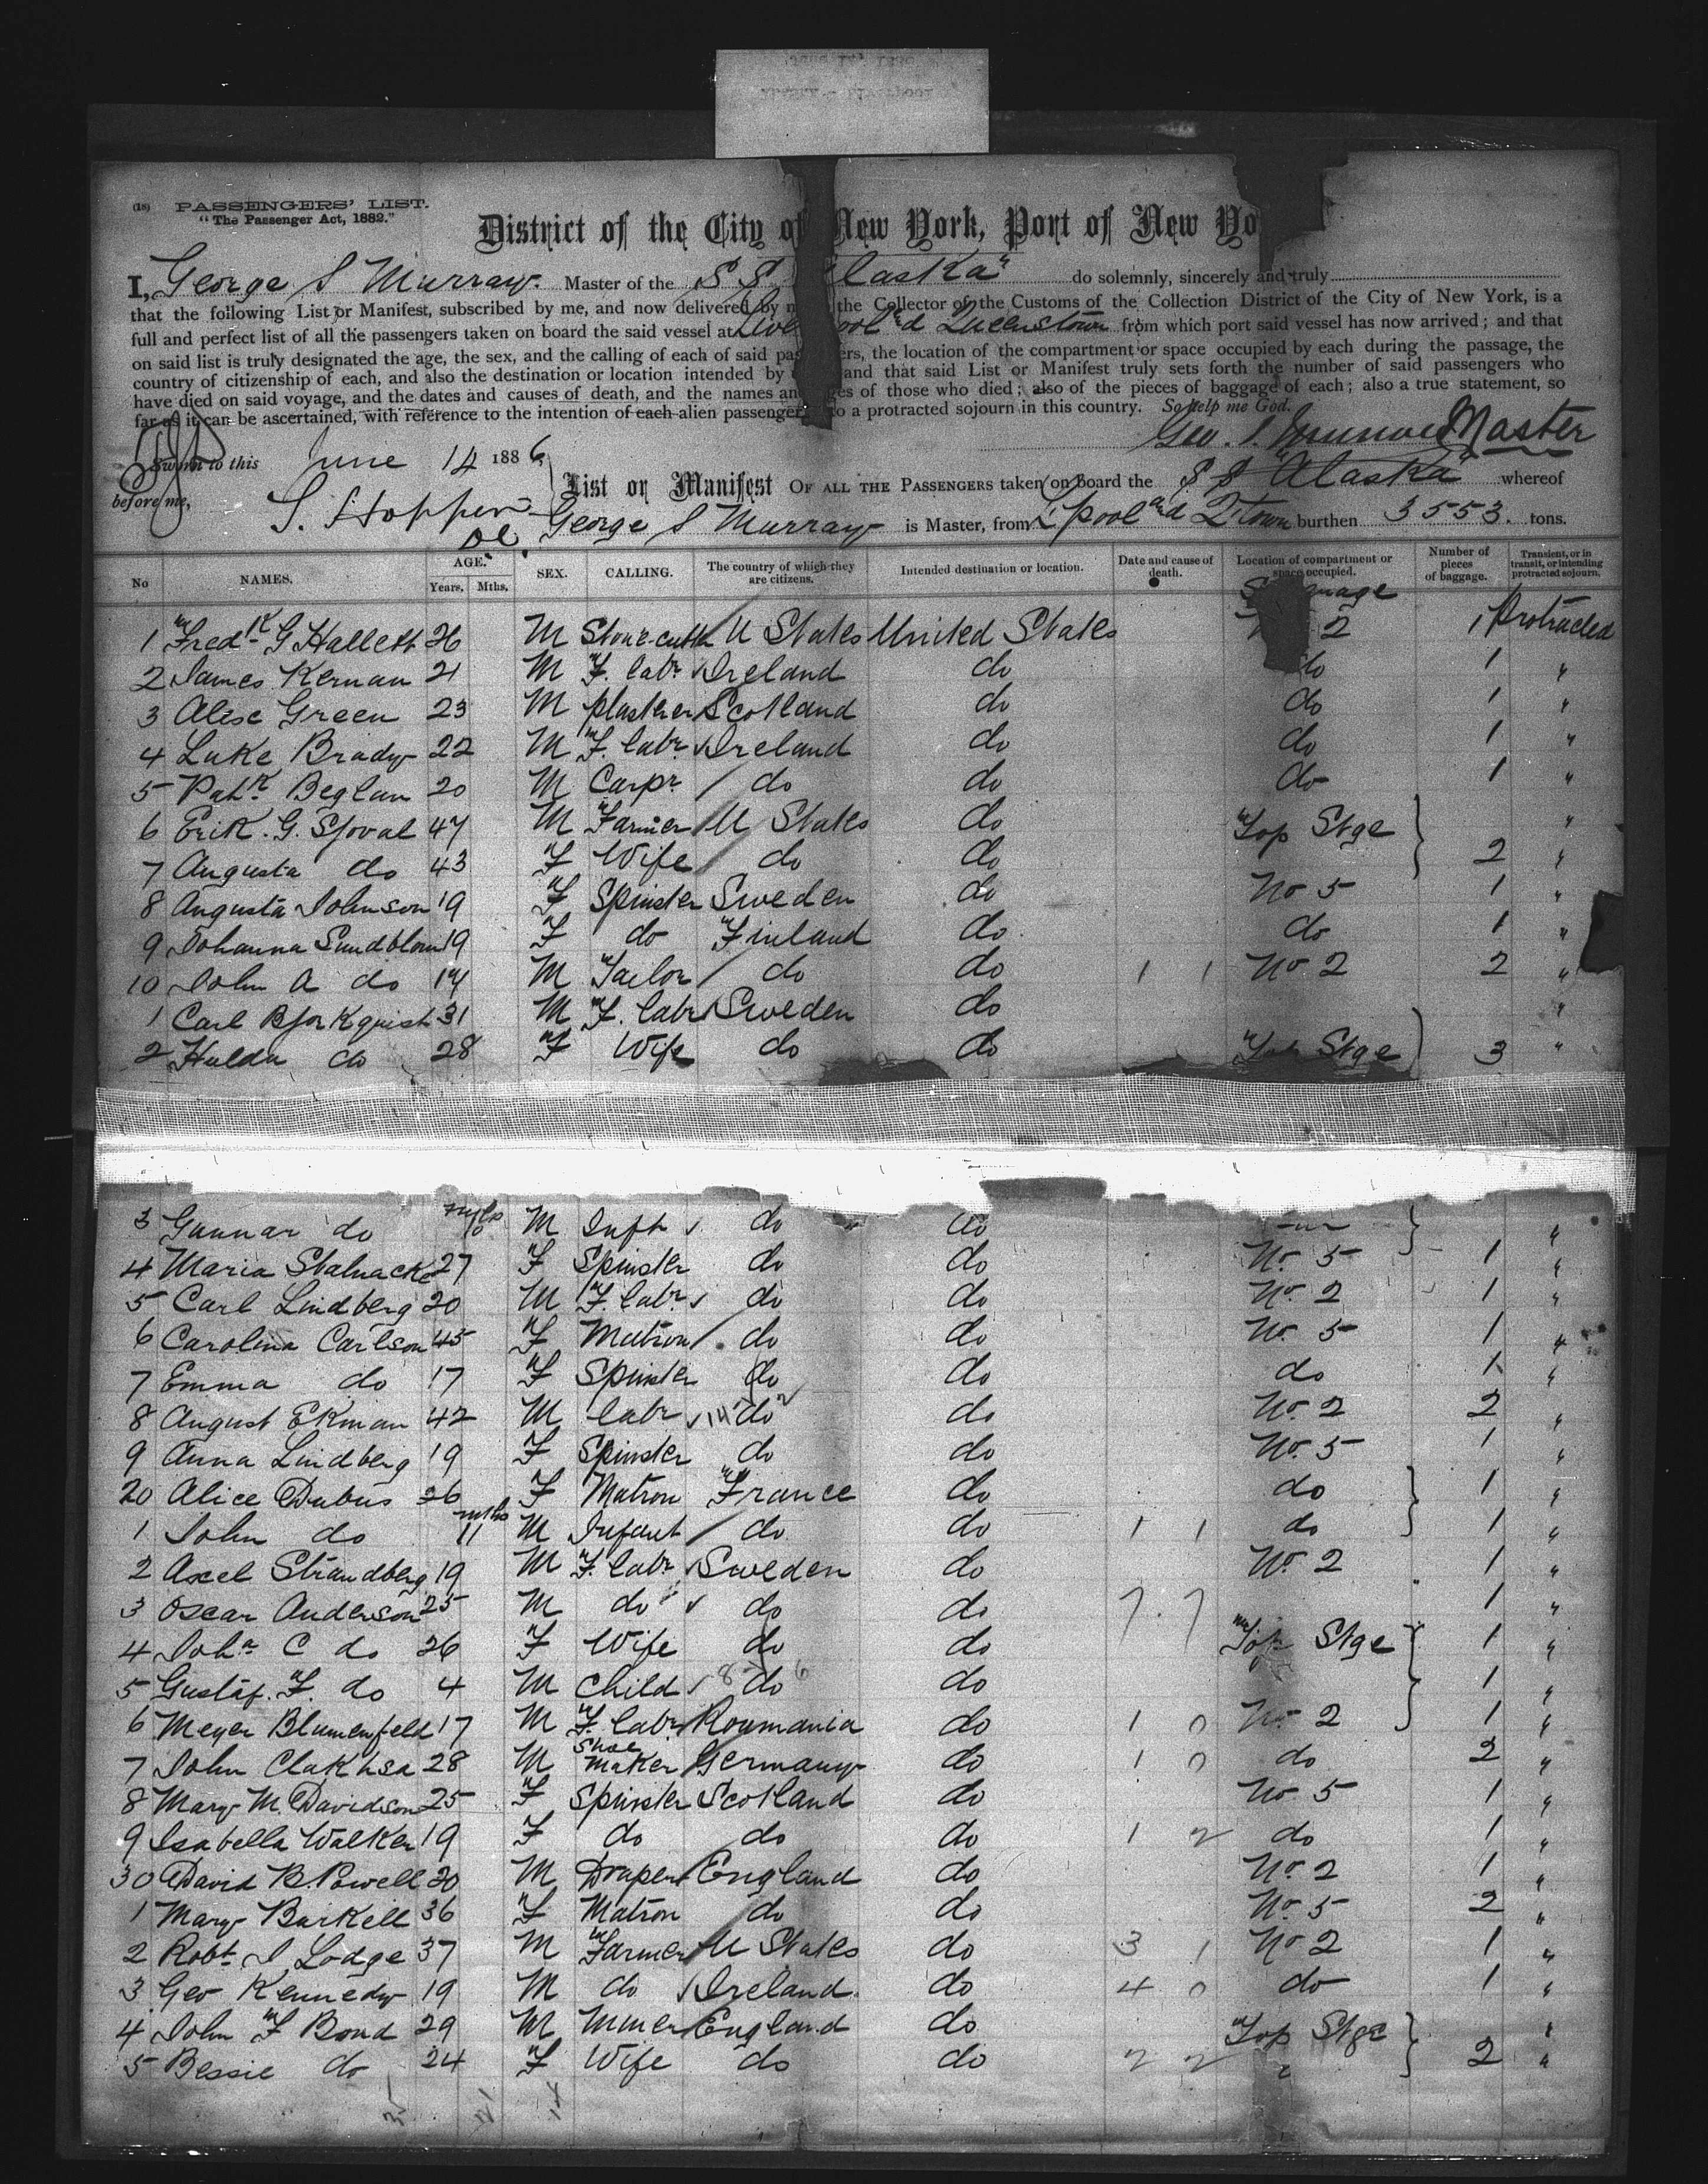 (18) PASSENGERS' LIST.
"The Passenger Act, 1882."
District of the City of New York, Port of New Yo
I, George S Murray Master of the S S Alaska" do solemnly, sincerely and truly
that the following List or Manifest, subscribed by me, and now delivered by m the Collector of the Customs of the Collection District of the City of New York, is a
full and perfect list of all the passengers taken on board the said vessel at Live pool nd Queenstown from which port said vessel has now arrived; and that
on said list is truly designated the age, the sex, and the calling of each of said pas ers, the location of the compartment or space occupied by each during the passage, the
country of citizenship of each, and also the destination or location intended by and that said List or Manifest truly sets forth the number of said passengers who
have died on said voyage, and the dates and causes of death, and the names an ges of those who died; also of the pieces of baggage of each; also a true statement, so
far as it can be ascertained, with reference to the intention of each alien passenger to a protracted sojourn in this country. So help me God.
Geo. S. Master
Sworn to this June 14 1886
before me,
List or Manifest OF ALL THE PASSENGERS taken on board the S S "Alaska" whereof
George S Murray is Master, from L'pool and Q'town burthen 3553. tons.
No NAMES. AGE. Years, Mths, SEX. CALLING. The country of which they are citizens. Intended destination or location. Date and cause of death. Location of compartment or space occupied. Number of pieces of baggage. Transient, or in transit, or intending protracted sojourn.
1 Fredk G Hallett 26 M Stone cutter U States United States 2 1 Protracted
2 James Kernan 21 M F. labr Ireland do do 1 "
3 Alise Green 23 M plasterer Scotland do do 1 "
4 Luke Brady 22 M F. labr Ireland do do 1 "
5 Patk Beglan 20 M Carpr do do do 1 "
6 Erik. G. Sjoval 47 M Farmer U States do Top Stge "
7 Augusta do 43 F Wife do do 2 "
8 Augusta Johnson 19 F Spinster Sweden do No 5 1 "
9 Johanna Sundblom 19 F do Finland do do 1 "
10 John A do 17 M Tailor do do 1 1 No 2 2 "
1 Carl Bjorkquist 31 M F. labr Sweden do "
2 Hulda do 28 F Wife do do Top Stge 3 "
3 Gunnar do mths 10 M Inft do do "
4 Maria Stalnacke 27 F Spinster do do No. 5 1 "
5 Carl Lindberg 20 M F. labr do do No. 2 1 "
6 Carolina Carlson 45 F Matron do do No. 5 1 "
7 Emma do 17 F Spinster do do do 1 "
8 August Ekman 42 M labr 14 do 2 do No. 2 2 "
9 Anna Lindberg 19 F Spinster do do No. 5 1 "
20 Alice Dubus 26 F Matron France do do 1 "
1 John do mths 11 M Infant do do 1 1 do 1 "
2 Axel Strandberg 19 M F. labr Sweden do No. 2 1 "
3 Oscar Anderson 25 M do do do 7. 7 1 "
4 Joha C do 26 F Wife do do Top Stge 1 "
5 Gustaf. F. do 4 M Child 8 do 6 do 1 "
6 Meyer Blumenfeld 17 M F. labr Roumania do 1 0 No. 2 1 "
7 John 28 M Shoe maker Germany do 1 0 do 2 "
8 Mary M. Davidson 25 F Spinster Scotland do No 5 1 "
9 Isabella Walker 19 F do do do 1 2 do 1 "
30 David B. Powell 20 M Draper England do No. 2 1 "
1 Mary Barkell 36 F Matron do do No. 5 2 "
2 Robt J Lodge 37 M Farmer U States do 3 1 No 2 1 "
3 Geo Kennedy 19 M do Ireland do 4 0 do 1 "
4 John F Bond 29 M Miner England do Top Stge "
5 Bessie do 24 F Wife do do 2 2 " 2 "